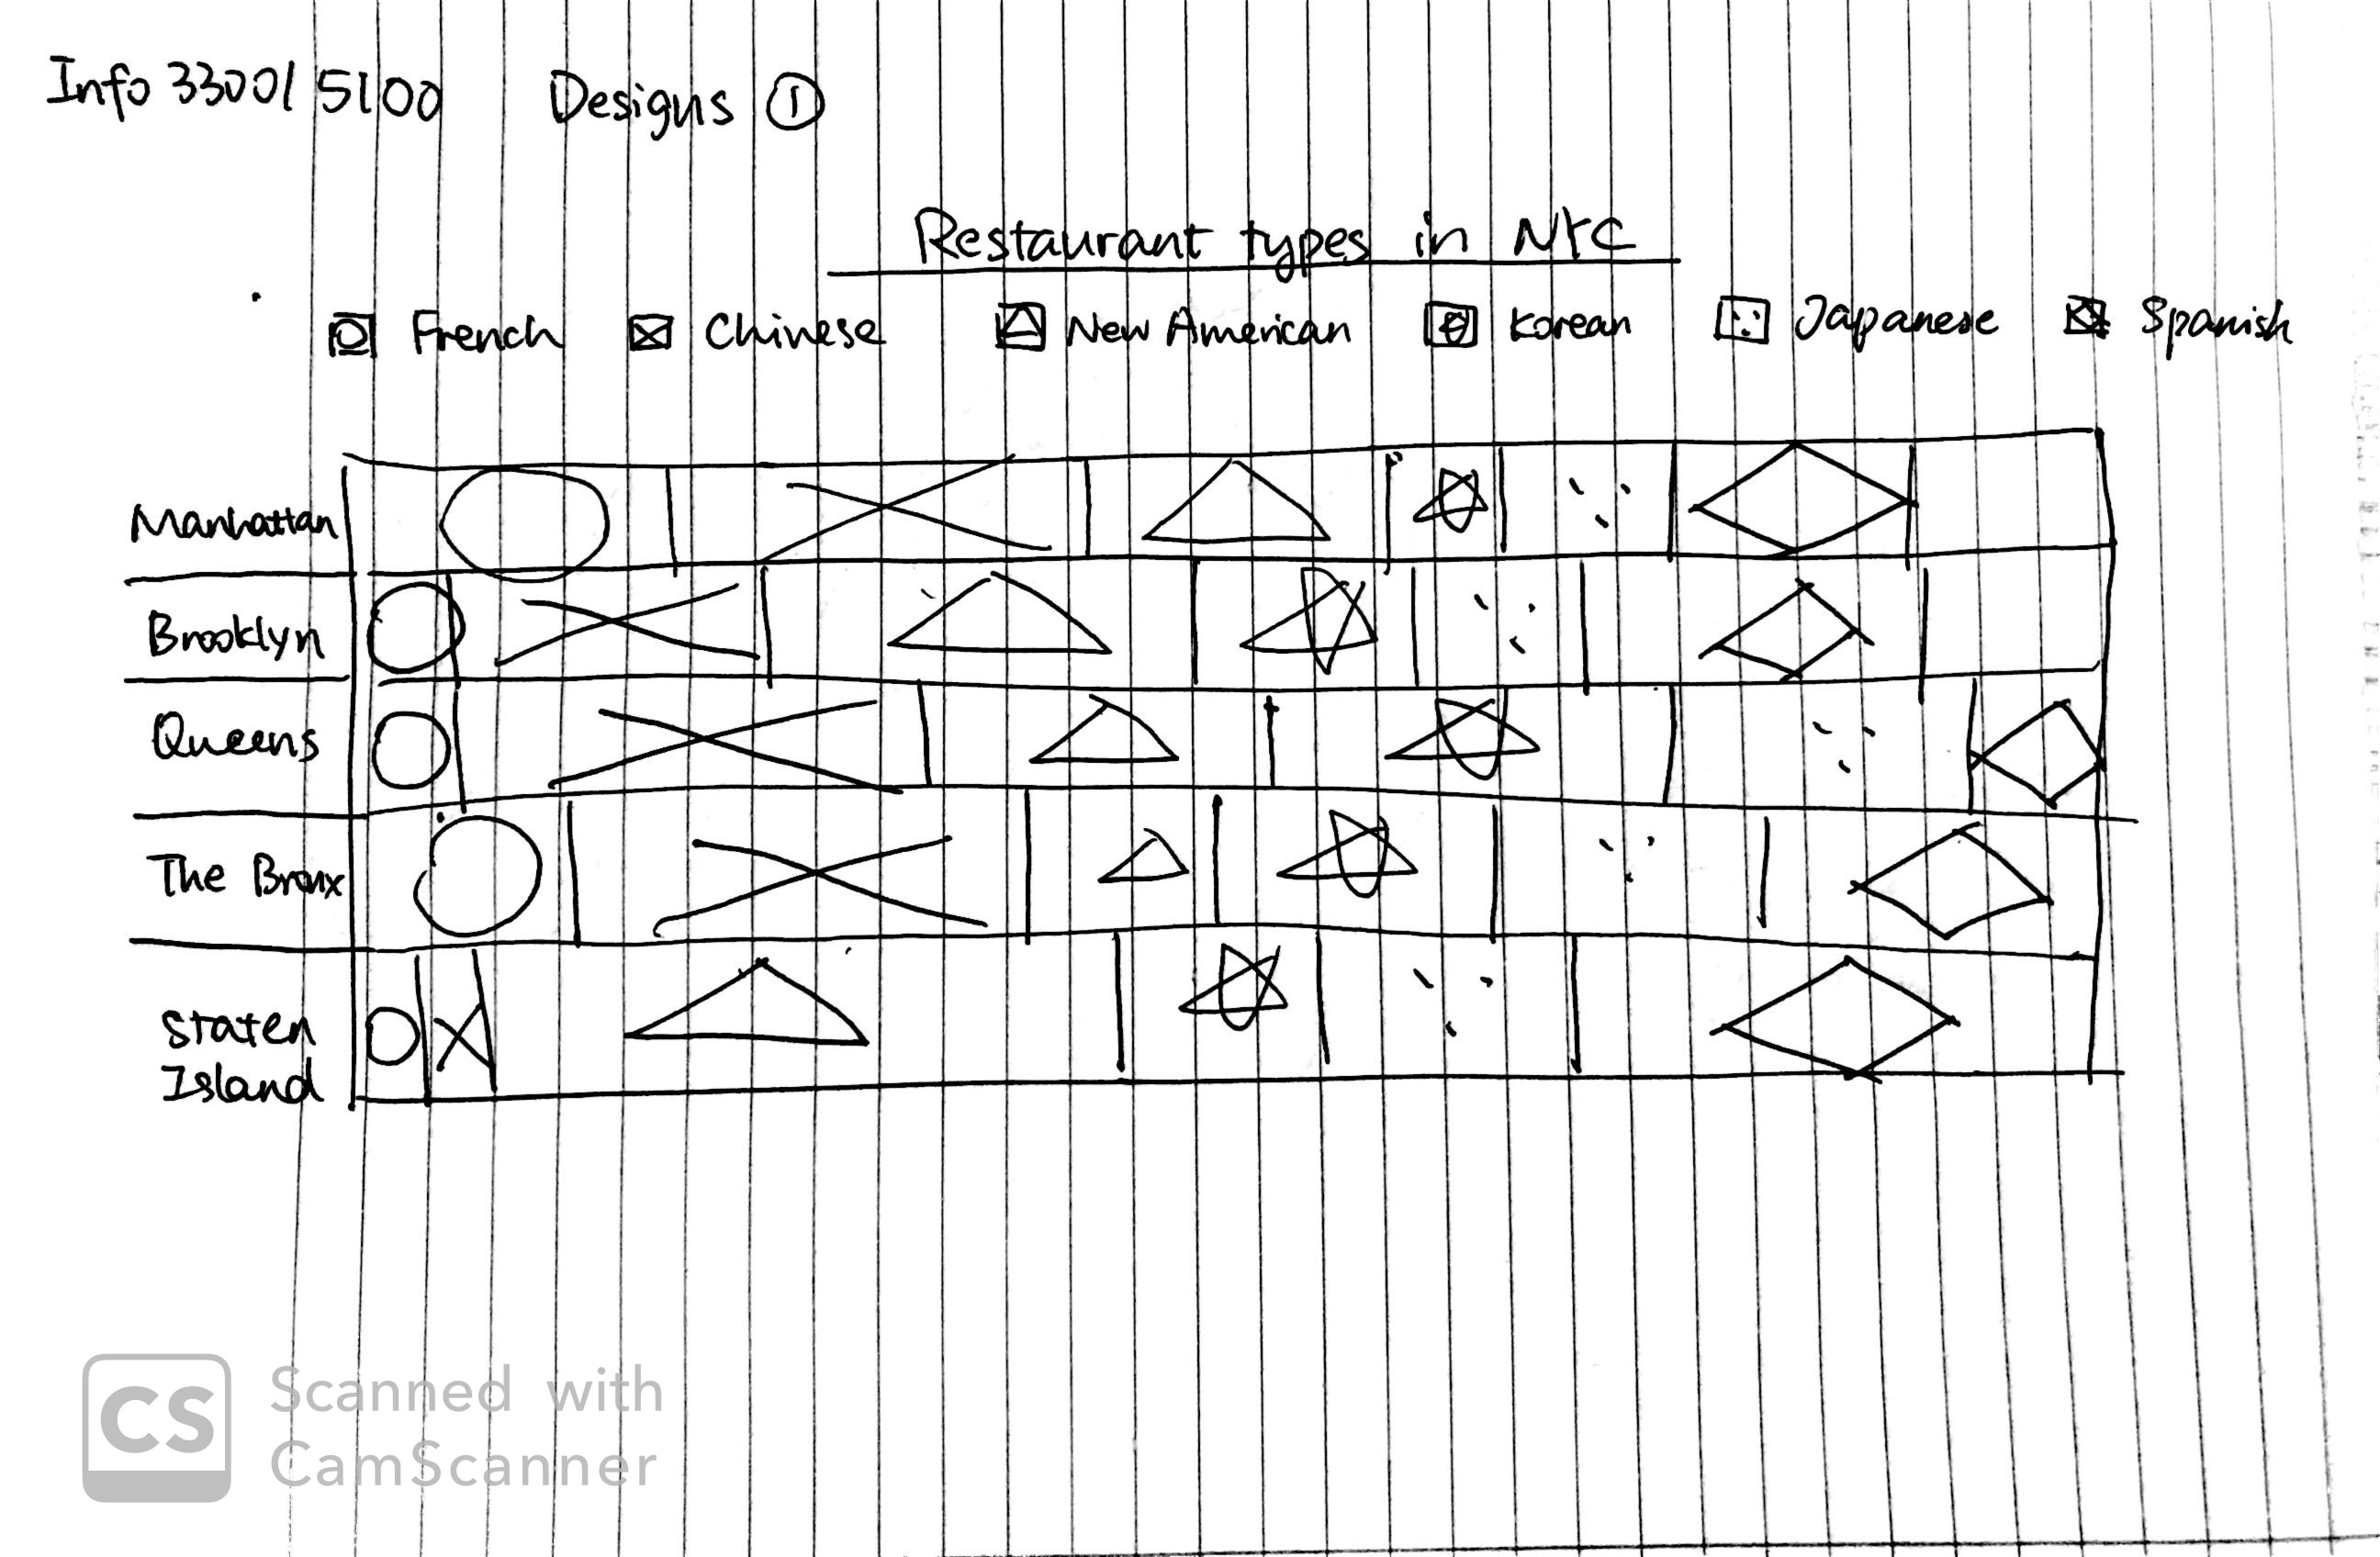 Info 3300/ 5100 Designs ①
Restaurant types in NYC
French Chinese New American Korean Japanese Spanish
Manhattan
Brooklyn
Queens
The Bronx
Staten
Island
CS Scanned with
CamScanner